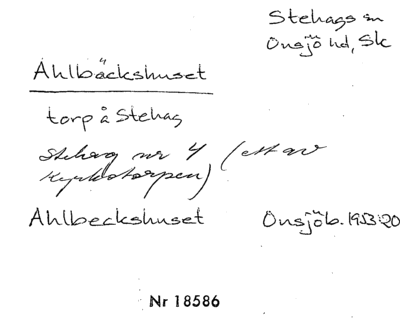 Stehags sn
Onsjö hd, Sk
Ahlbäckshuset
torp å Stehag
Stehag nr 4 (ett av
Kyrkotorpen)
Ahlbeckshuset Onsjöb. 1953:20
Nr 18586